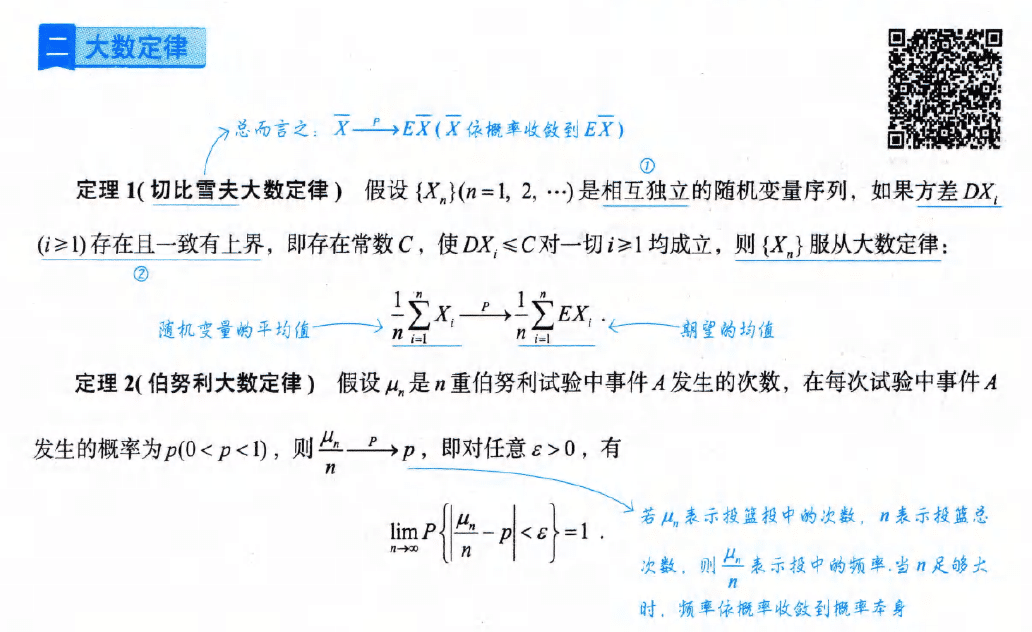 二 大数定律
总而言之：X̅ —P→ EX̅ (X̅ 依概率收敛到 EX̅)
①
定理 1(切比雪夫大数定律) 假设 {Xₙ}(n=1, 2, …)是相互独立的随机变量序列，如果方差 DXᵢ
(i≥1)存在且一致有上界，即存在常数 C，使 DXᵢ≤C 对一切 i≥1 均成立，则 {Xₙ} 服从大数定律：
②
随机变量的平均值 $\frac{1}{n}\sum_{i=1}^{n}X_i \xrightarrow{P} \frac{1}{n}\sum_{i=1}^{n}EX_i$ . 期望的均值
定理 2(伯努利大数定律) 假设 μₙ 是 n 重伯努利试验中事件 A 发生的次数，在每次试验中事件 A
发生的概率为 p(0<p<1)，则 $\frac{\mu_n}{n} \xrightarrow{P} p$，即对任意 ε>0，有
$\lim_{n\to\infty} P\left\{\left|\frac{\mu_n}{n}-p\right|<\varepsilon\right\}=1$ .
若 μₙ 表示投篮投中的次数，n 表示投篮总
次数，则 $\frac{\mu_n}{n}$ 表示投中的频率.当 n 足够大
时，频率依概率收敛到概率本身